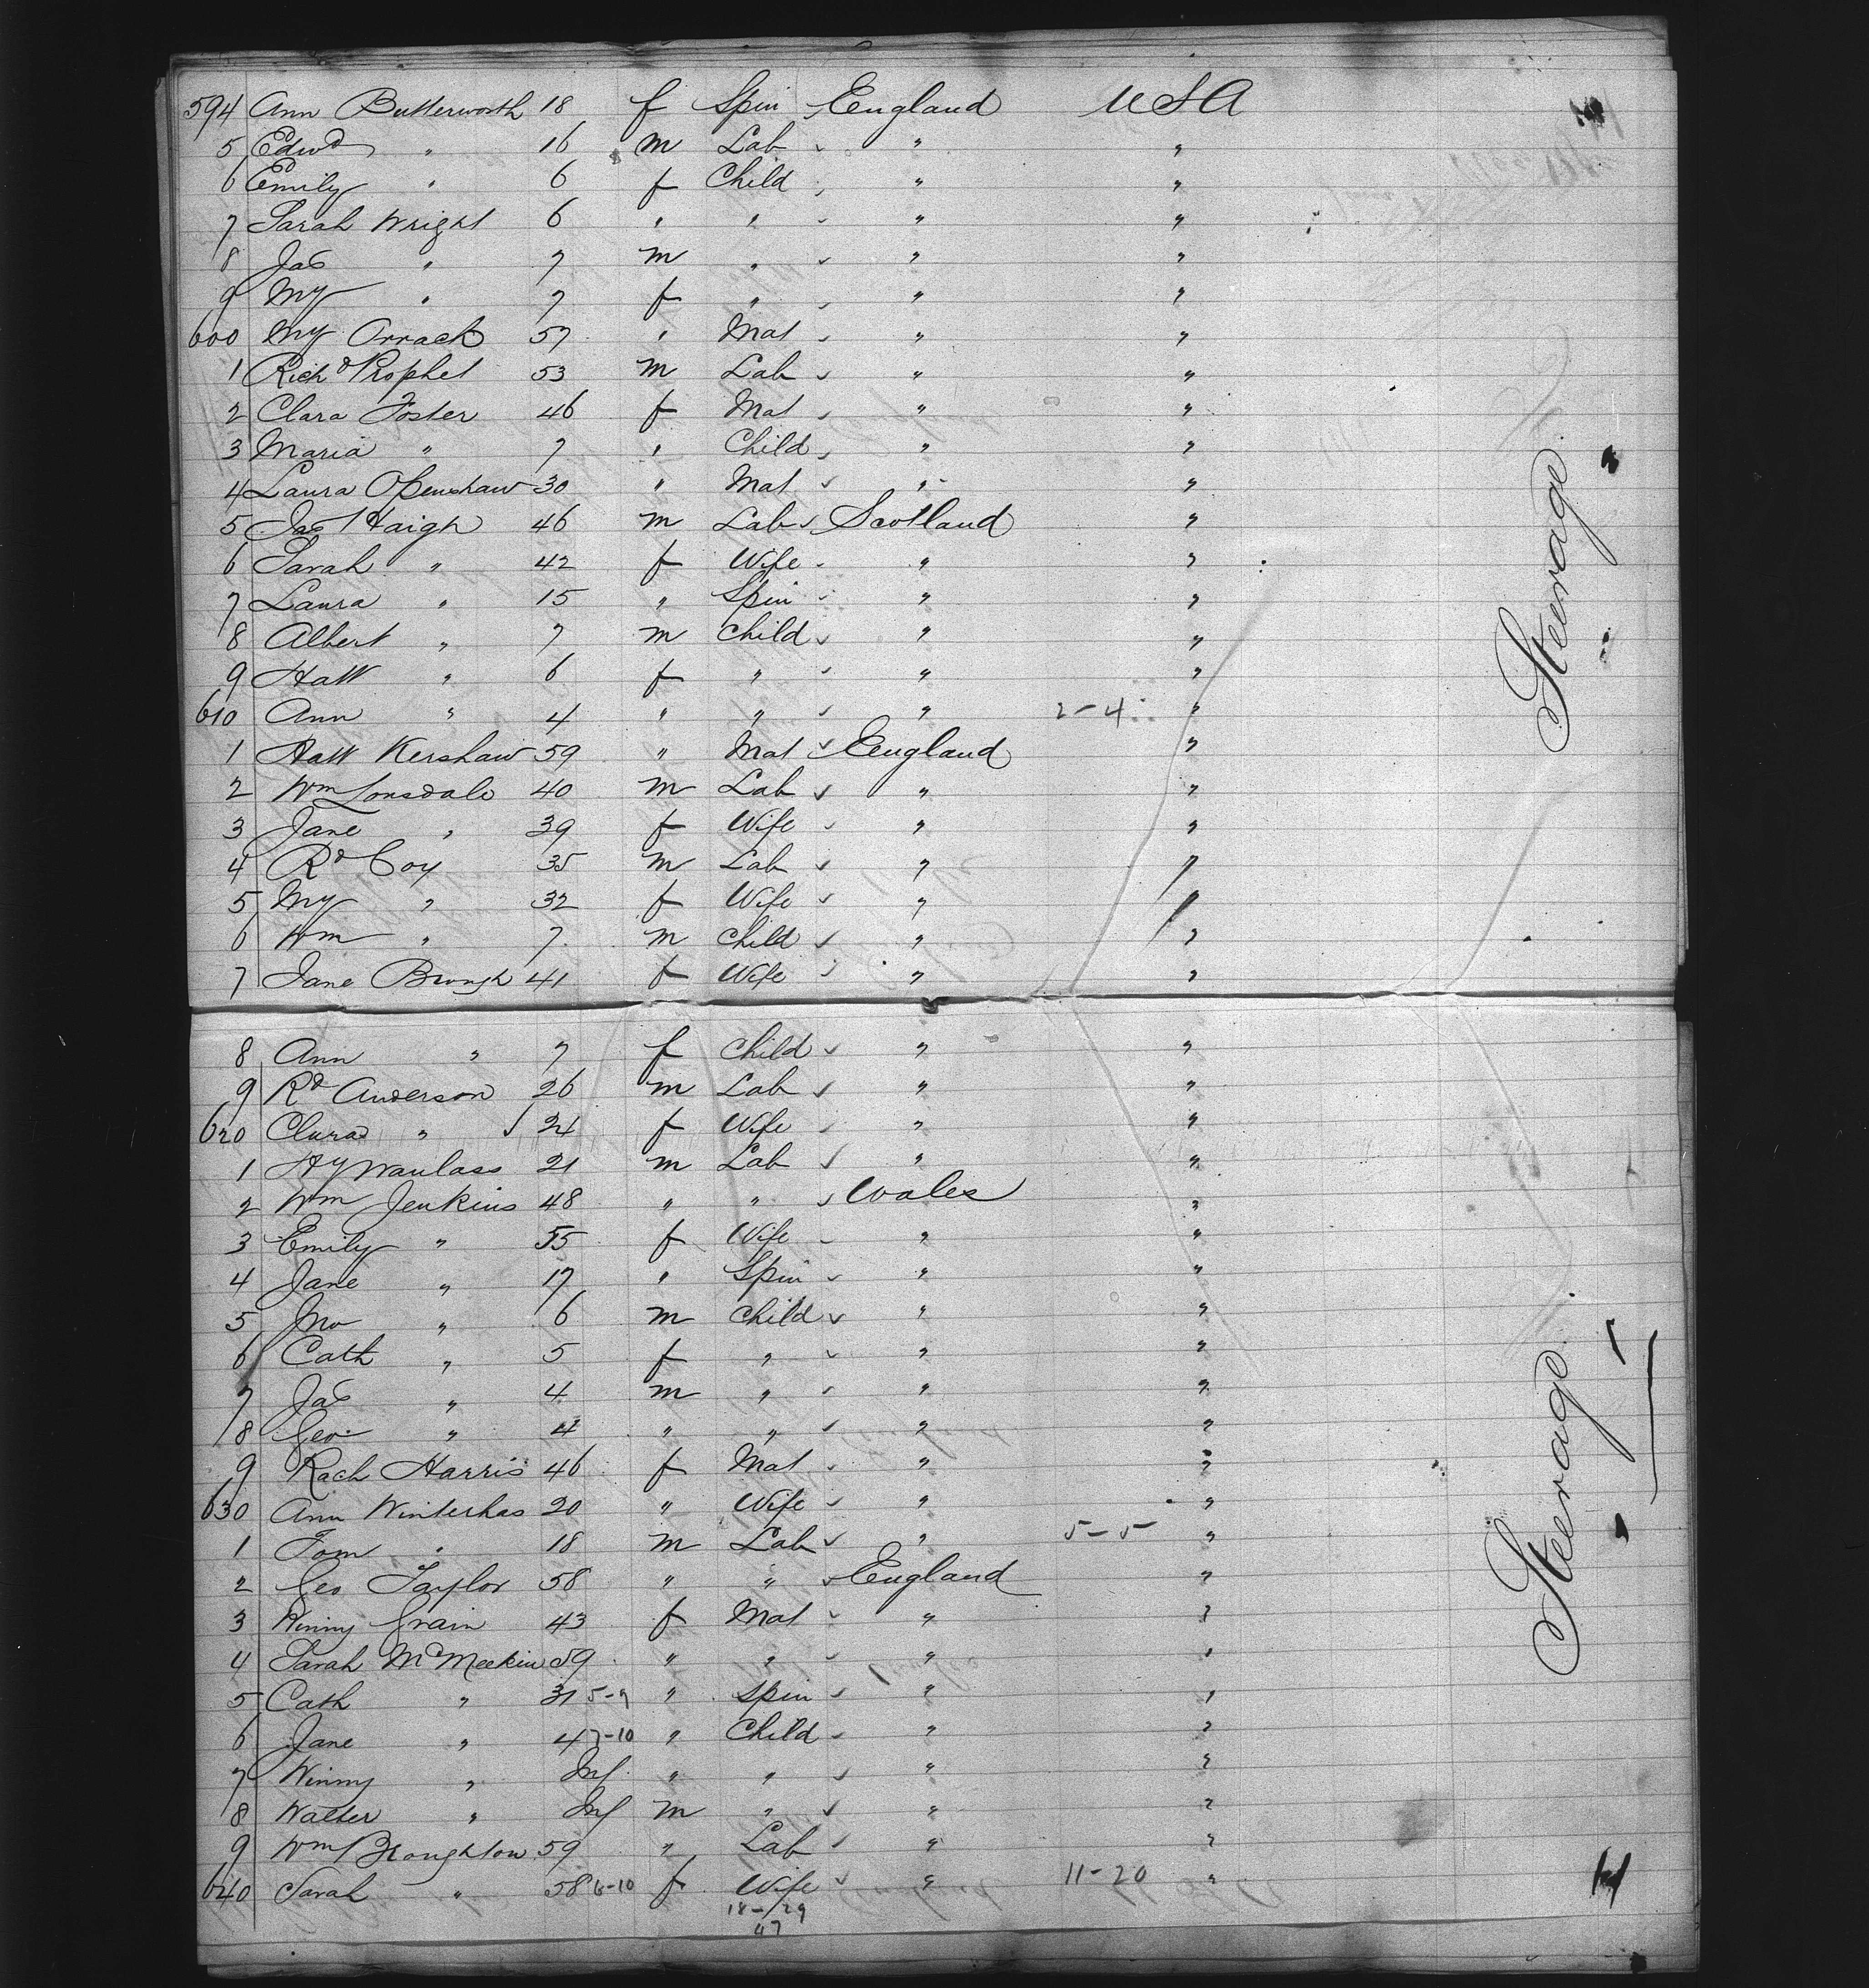 594 Ann Butterworth 18 f Spin England USA
5 Edwd " 16 m Lab " "
6 Emily " 6 f Child " "
7 Sarah Wright 6 " " " "
8 Jas " 7 m " " "
9 My " 7 f " " "
600 My Arrack 57 " Mat " "
1 Richd Prophet 53 m Lab " "
2 Clara Foster 46 f Mat " "
3 Maria " 7 " Child " "
4 Laura Openshaw 30 " Mat " "
5 Jas Haigh 46 m Lab Scotland "
6 Sarah " 42 f Wife " "
7 Laura " 15 " Spin " "
8 Albert " 7 m Child " "
9 Hatt " 6 f " " "
610 Ann " 4 " " " 2-4 "
1 Hatt Kershaw 59 " Mat England "
2 Wm Lonsdale 40 m Lab " "
3 Jane " 39 f Wife " "
4 Rd Coy 35 m Lab " "
5 My " 32 f Wife " "
6 Wm " 7 m Child " "
7 Jane Brough 41 f Wife " "
Steerage
8 Ann " 7 f Child " "
9 Rd Anderson 26 m Lab " "
620 Clara " 24 f Wife " "
1 Hy Wanlass 21 m Lab " "
2 Wm Jenkins 48 " " Wales "
3 Emily " 55 f Wife " "
4 Jane " 17 " Spin " "
5 Jno " 6 m Child " "
6 Cath " 5 f " " "
7 Jas " 4 m " " "
8 Geo " 4 " " " "
9 Rach Harris 46 f Mat " "
630 Ann Winterhas 20 " Wife " "
1 Tom " 18 m Lab " 5-5 "
2 Geo Taylor 58 " " England "
3 Winny Grain 43 f Mat " "
4 Sarah McMeekin 59 " " " "
5 Cath " 31 5-9 " Spin " "
6 Jane " 4 7-10 " Child " "
7 Winny " Inf " " " "
8 Walter " Inf m " " "
9 Wm Broughton 59 " Lab " "
640 Sarah " 58 6-10 f Wife " 11-20 "
18-29
47
Steerage